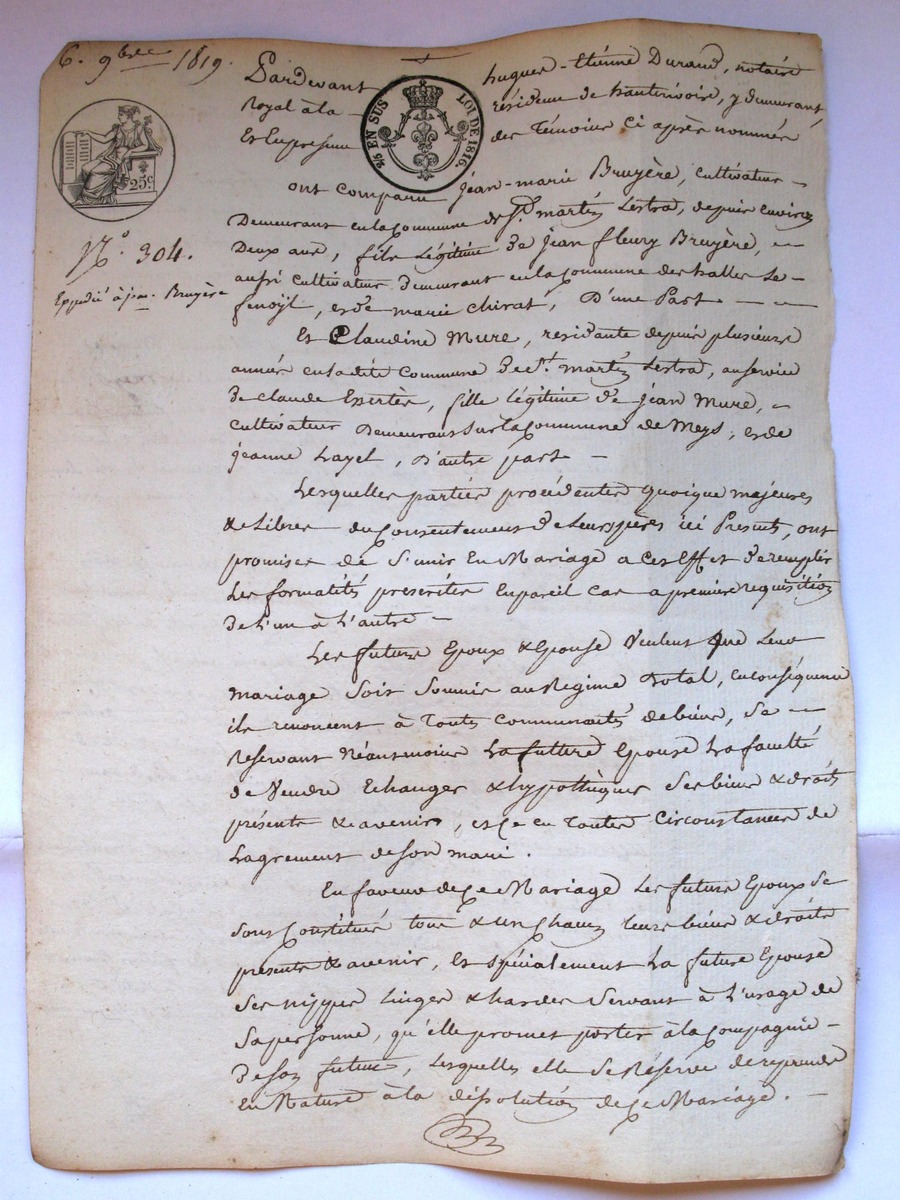 6. 9bre 1819.
Pardevant hugues-Etienne Durand, notaire
Royal à la résidence de hauterivoire, y demeurant
Et En présence des Témoins Ci après nommés
25 EN SUS LOI DE 1816.
25c.
N.° 304.
Expédié à j. m. Bruyère
ont comparu Jean-marie Bruyère, Cultivateur
Demeurant en la Commune de St. martin Lestra, depuis environ
Deux ans, fils Légitime de jean fleury Bruyère,
aussi cultivateur demeurant en la Commune des halles Le
fenoÿl, et de marie chirat, D'une Part
Et Claudine Mure, residante depuis plusieurs
années en la dite Commune de st. martin Lestra, au service
de claude Exertier, fille légitime de jean Mure,
Cultivateur Demeurant sur la Commune de Meys, et de
jeanne Layel, d'autre part
Lesquelles parties procédentes quoique majeures
& Libres du Consentement de Leurs pères ici Presents, ont
promises de S'unir En Mariage a Cet Effet de remplir
Les formalités prescrites En pareil Cas a premiere requisition
de L'un à L'autre
Les futurs Epoux & Epouse Veulent que Leur
Mariage Soit Soumis au Regime Dotal, en conséquence
ils renoncent à Toutes Communautés de biens, Se
Reservant Néansmoins La future Epouse La faculté
de Vendre Echanger & hypothèquer Ses biens & droits
présents & avenirs, et Ce en Toutes Circonstances de
Lagrement de Son mari.
En faveur de Ce Mariage Les futurs Epoux Se
Sont Constitués tous & un Chacun leurs biens & droits
présents & avenir, Et Spécialement La future Epouse
Ses nippes Linges & hardes Servant à L'usage de
Sa personne, qu'elle promet porter à la Compagnie
de Son futur, Lesquelles elle Se Réserve de reprendre
En Nature à la dissolution de Ce Mariage.